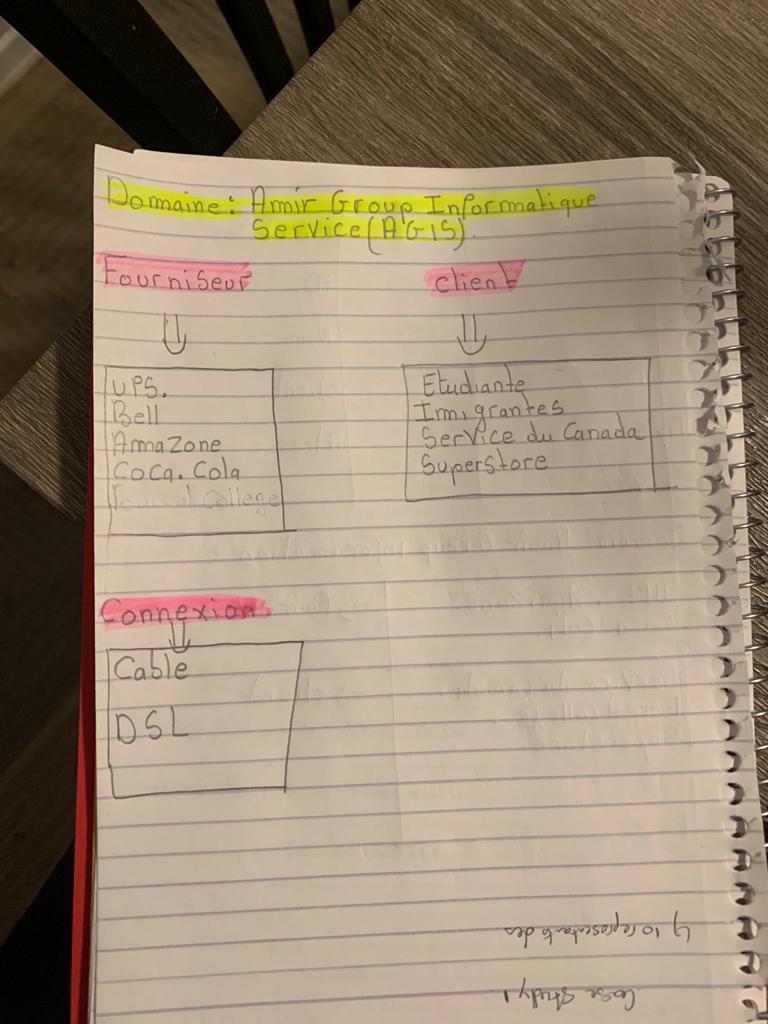 Domaine: Amir Group Informatique
Service (AGIS).
Fourniseur
client
UPS.
Bell
AmaZone
Coca. Cola
College
Etudiante
Immigrantes
Service du Canada
Superstore
Connexion
Cable
DSL
10 representants des
Case Study 1